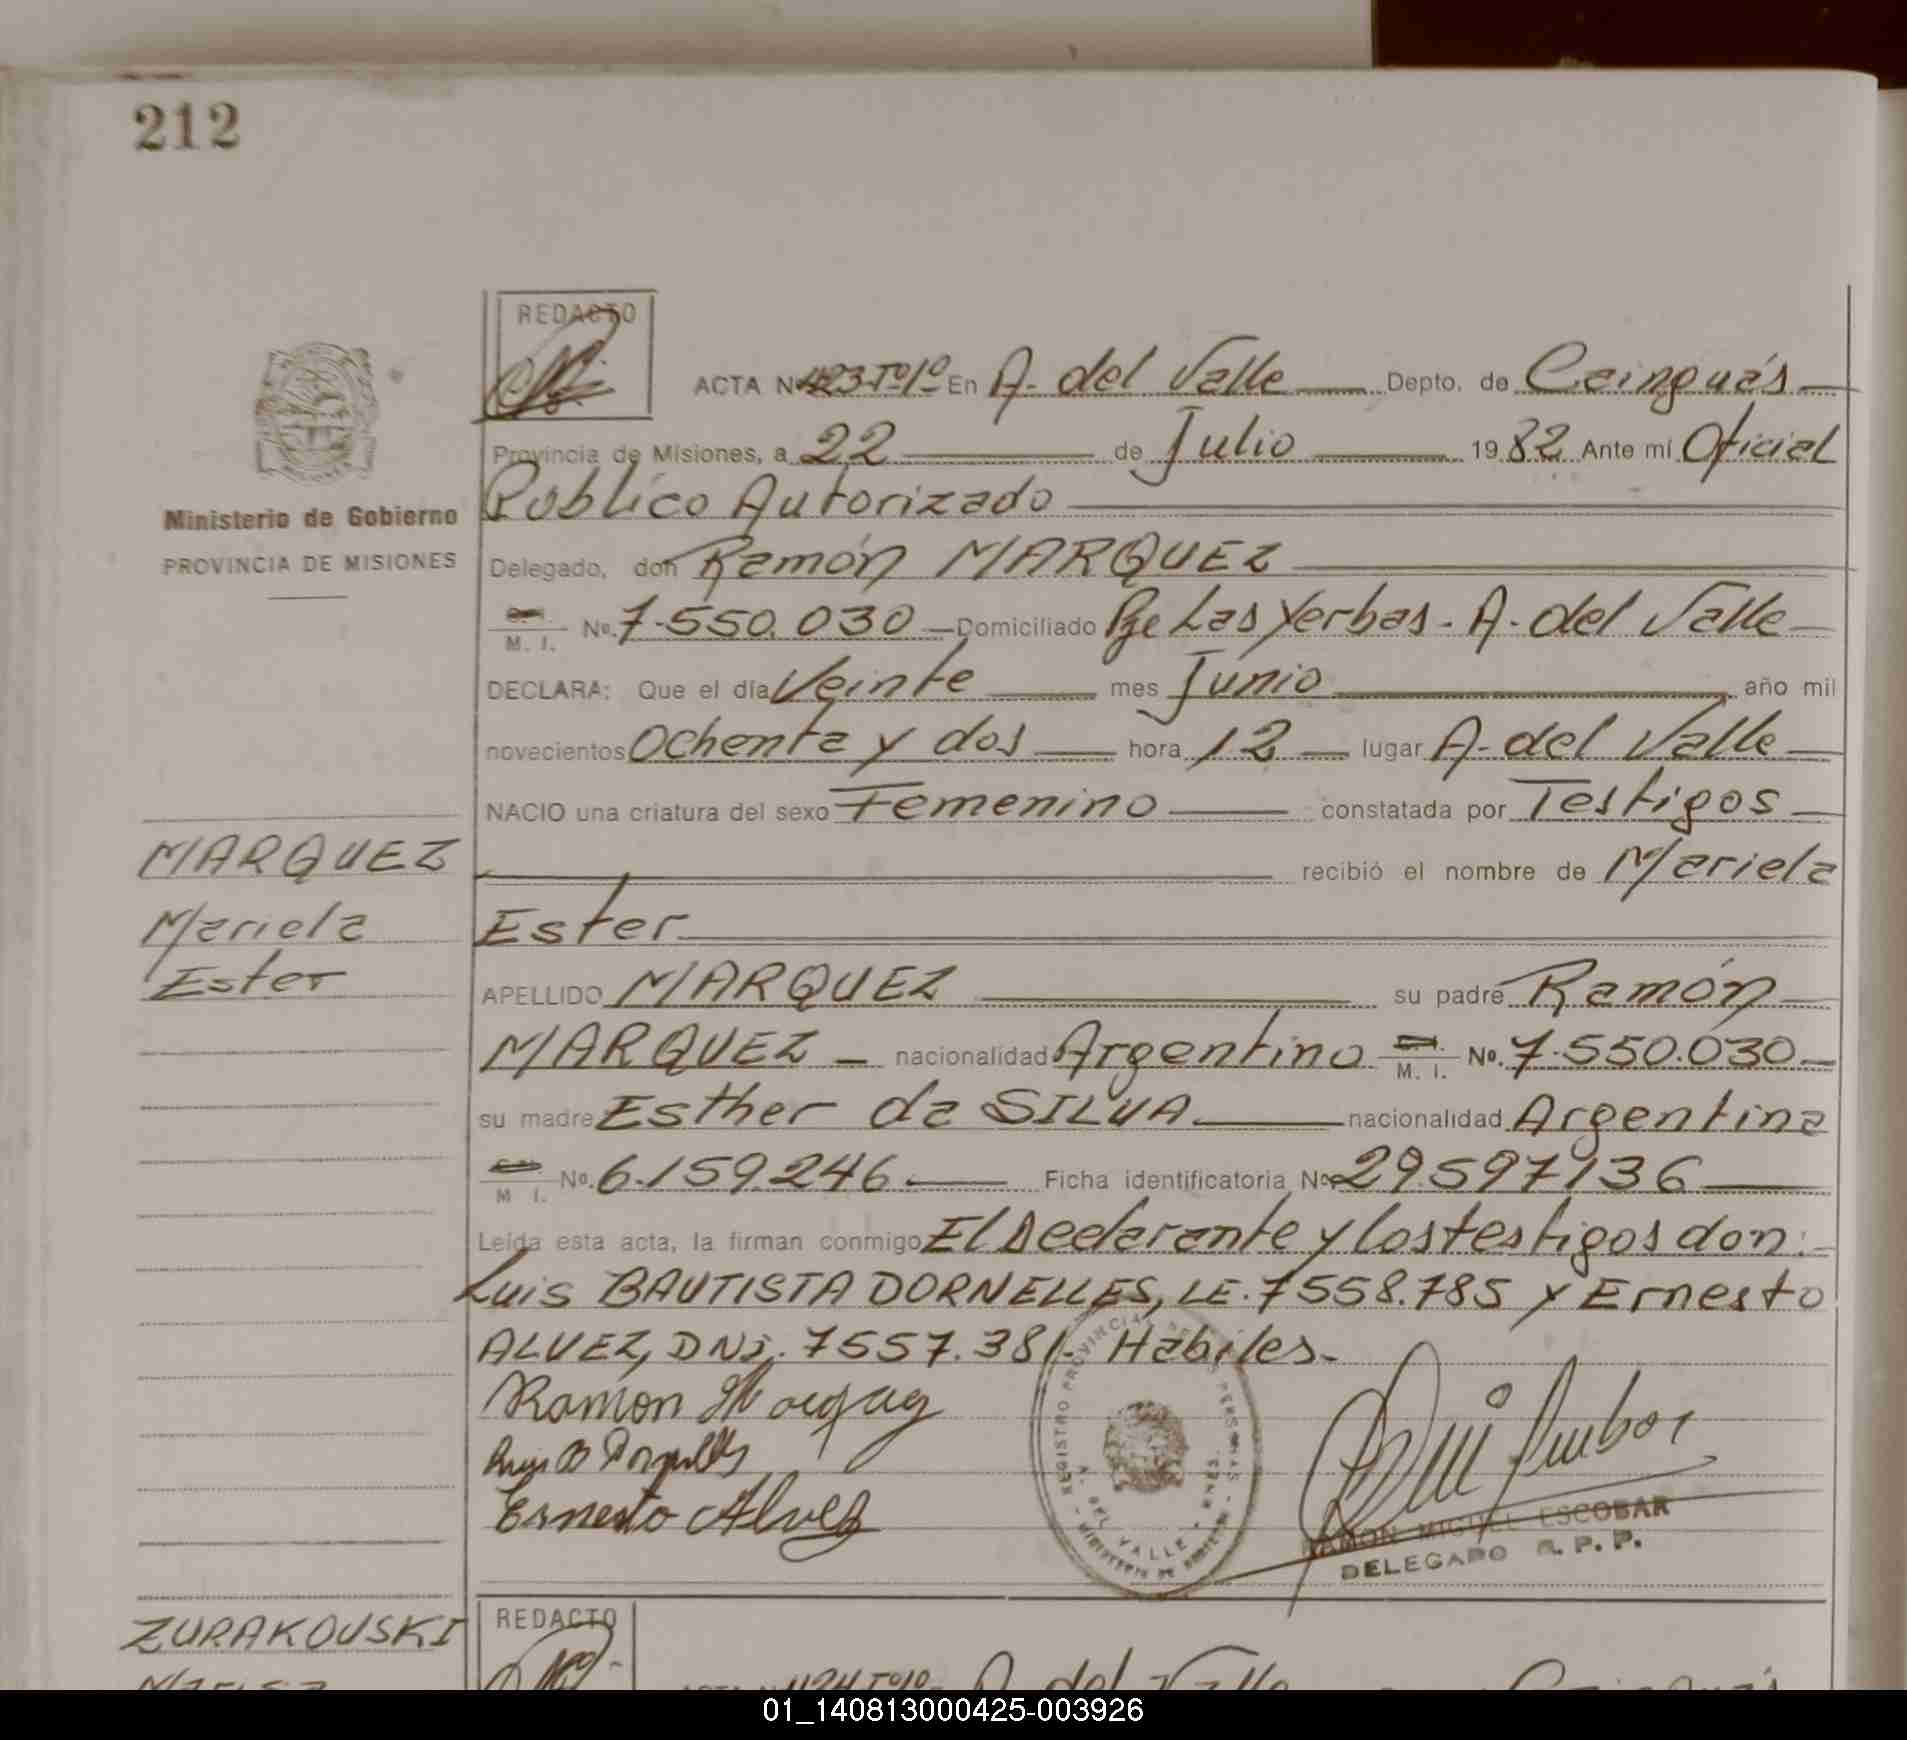 212
REDACTO
ACTA Nº 423-Tº1º En A. del Valle Depto. de Cainguás
Provincia de Misiones, a 22 de Julio 1982 Ante mí Oficial
Ministerio de Gobierno
Público Autorizado
PROVINCIA DE MISIONES
Delegado, don Ramón MARQUEZ
M. I. Nº. 7.550.030 Domiciliado Pje Las Yerbas. A. del Valle
DECLARA: Que el día Veinte mes Junio año mil
novecientos Ochenta y dos hora 12 lugar A. del Valle
NACIO una criatura del sexo Femenino constatada por Testigos
MARQUEZ
recibió el nombre de Mariela
Mariela
Ester
Ester
APELLIDO MARQUEZ su padre Ramón
MARQUEZ nacionalidad Argentino M. I. Nº. 7.550.030
su madre Esther da SILVA nacionalidad Argentina
M I. Nº. 6.159.246 Ficha identificatoria Nº 29.597.136
Leída esta acta, la firman conmigo El Declarante y los testigos don:
Luis BAUTISTA DORNELLES, LE. 7558.785 y Ernesto
ALVEZ, DNI. 7557.381. Hábiles.
Ramon Marquez
Luis B Dornelles
Ernesto Alvez
REGISTRO PROVINCIAL DE LAS PERSONAS
A. DEL VALLE - MNES.
MINISTERIO DE GOBIERNO
RAMON MIGUEL ESCOBAR
DELEGADO R. P. P.
REDACTO
ZURAKOUSKI
A. del Valle
01_140813000425-003926